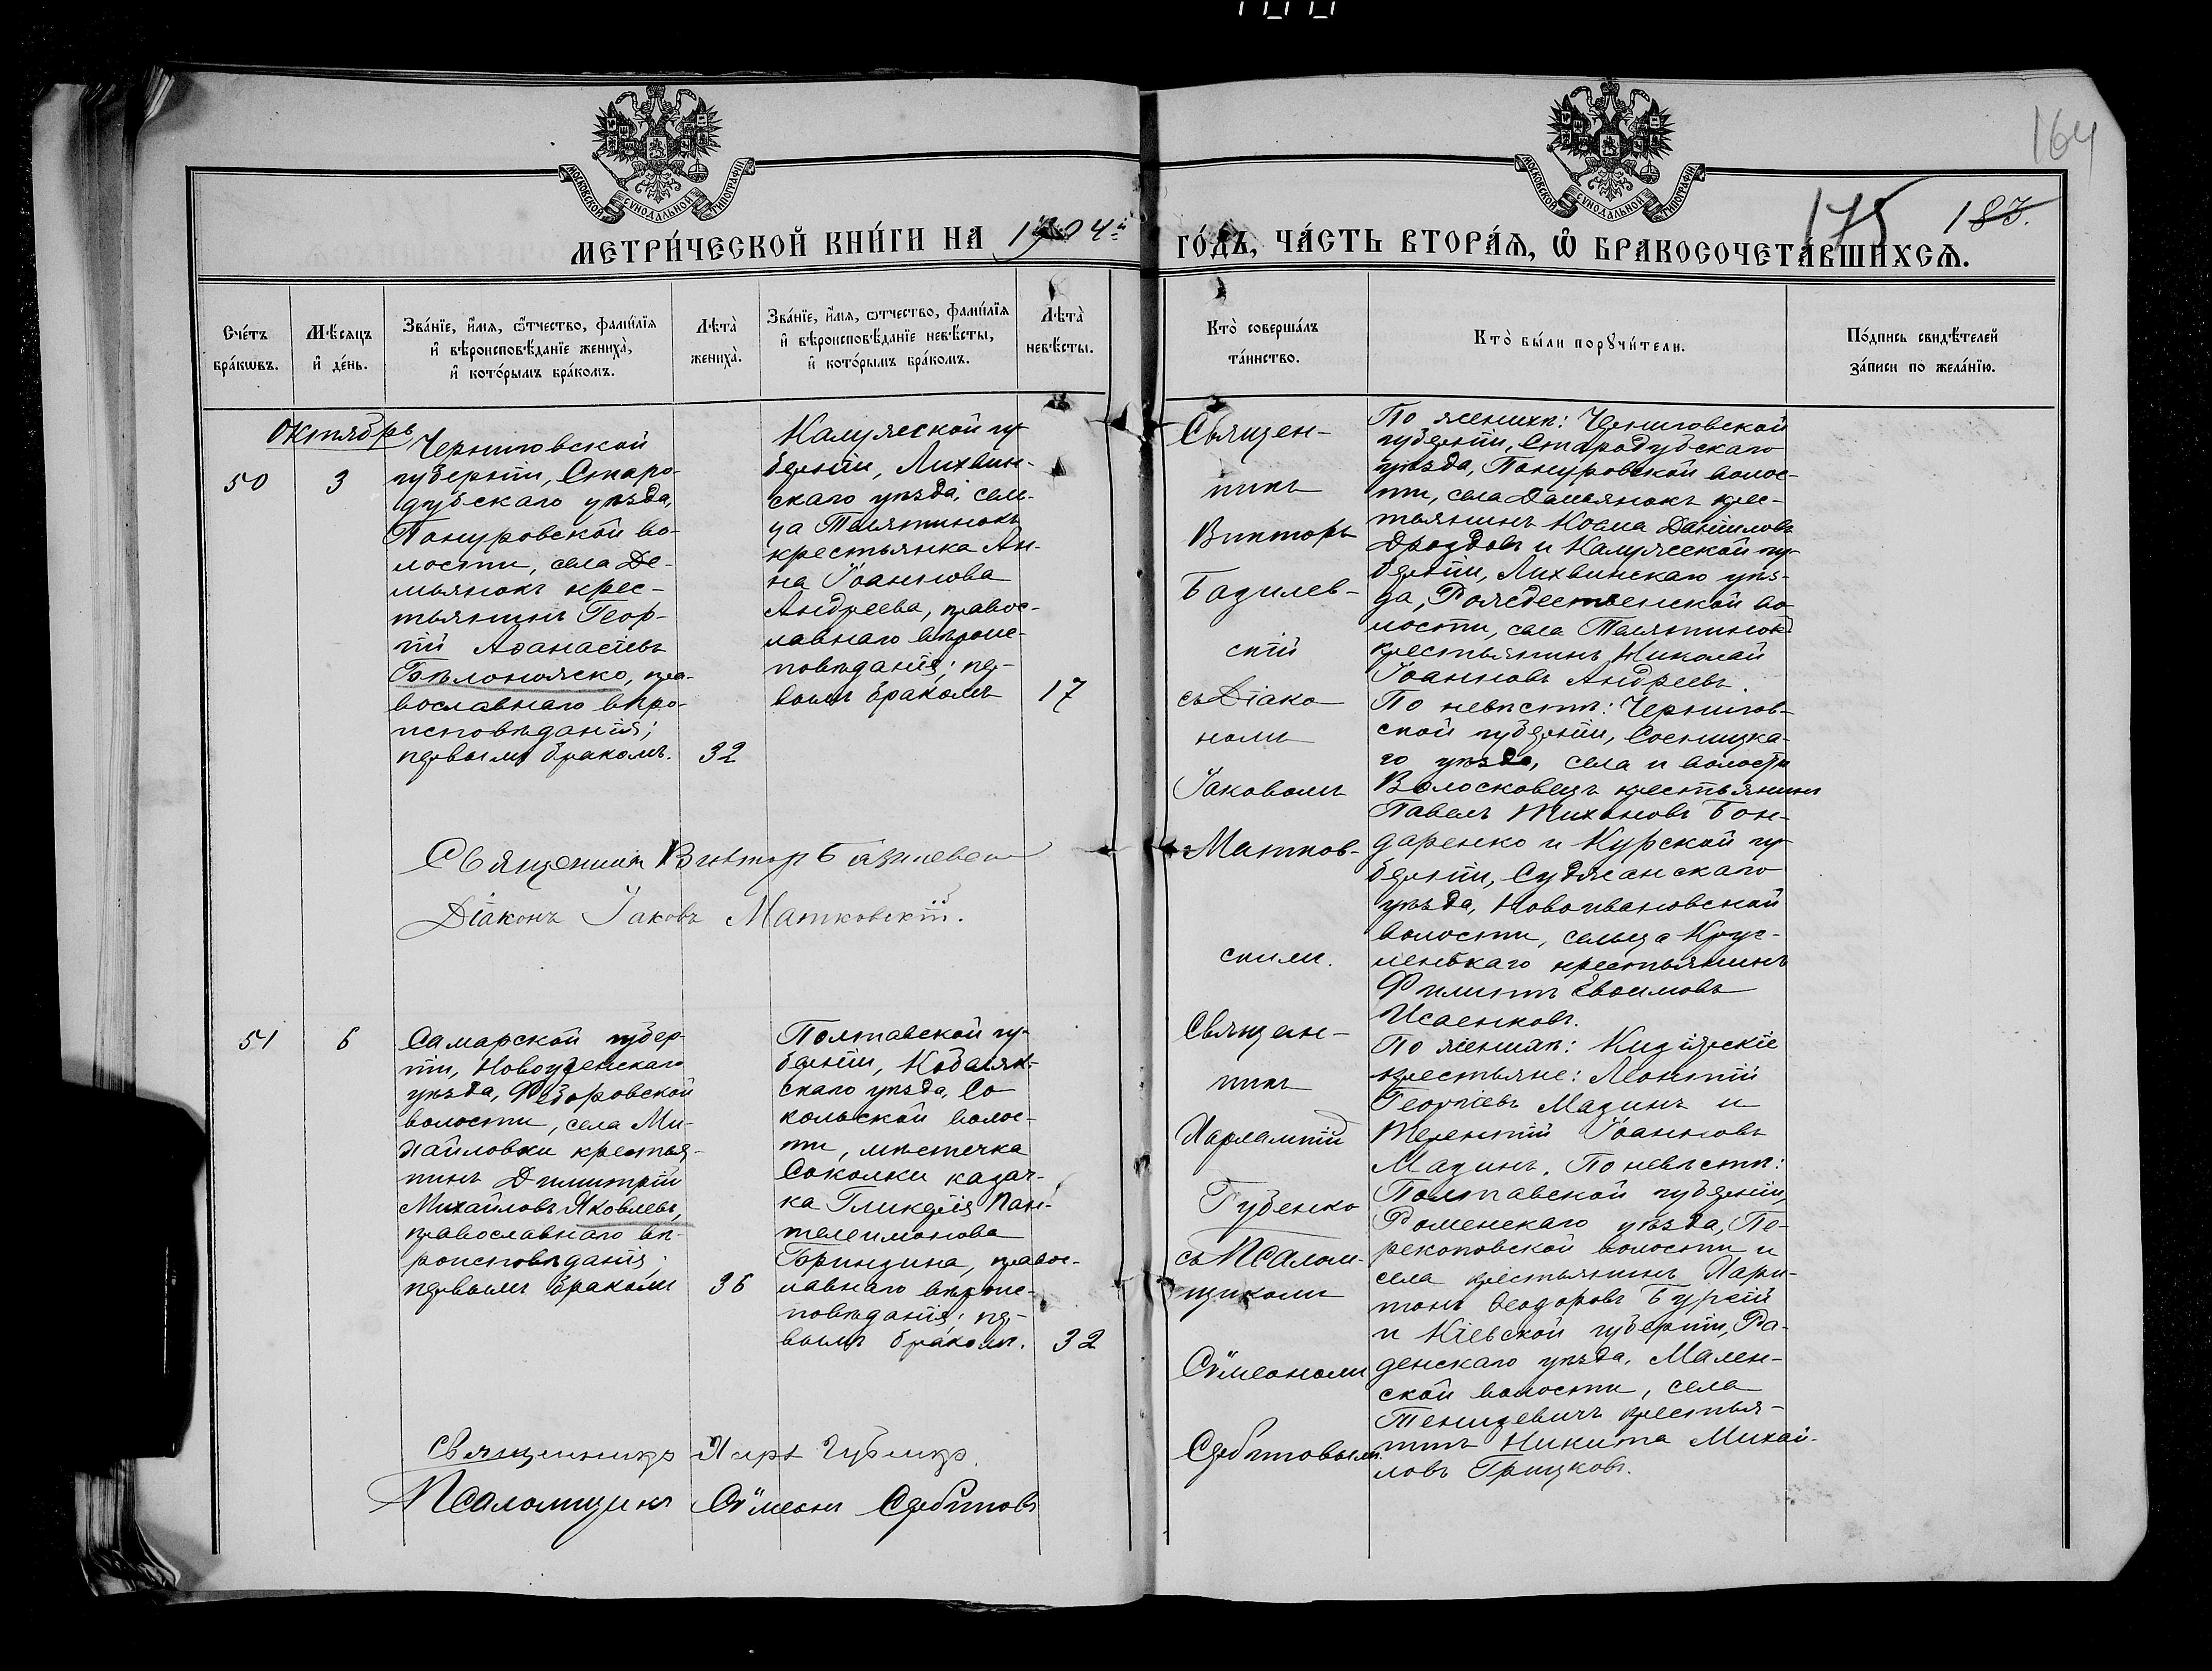 164
175 183.
МОСКОВСКОЙ СѴНОДАЛЬНОЙ ТИПОГРАФІИ
МОСКОВСКОЙ СѴНОДАЛЬНОЙ ТИПОГРАФІИ
МЕТРИ́ЧЕСКОЙ КНИ́ГИ НА 1904й ГО́ДЪ, ЧА́СТЬ ВТОРА́Я, Ѽ БРАКОСОЧЕТА́ВШИХСѦ.
Сче́тъ
бра́кѡвъ.
Мѣ́сяцъ
и҆ де́нь.
Зва́нїе, и҆́мя, ѻ҆́тчество, фами́лїя
и҆ вѣроисповѣ́данїе жениха̀,
и҆ кото́рымъ бра́комъ.
Лѣта̀
жениха̀.
Зва́нїе, и҆́мя, ѻ҆тчество, фами́лїя
и҆ вѣроисповѣ́данїе невѣ́сты,
и҆ кото́рымъ бра́комъ.
Лѣта̀
невѣ́сты.
Кто̀ соверша́лъ
та́инство.
Кто̀ бы́ли порꙋчи́тели.
По́дпись свидѣ́телей
за́писи по жела́нїю.
Октябрь
50
3
Черниговской
губерніи, Старо-
дубскаго уѣзда,
Понуровской во-
лости, села Де-
мьянокъ крес-
тьянинъ Геор-
гій Аѳанасіевъ
Бѣлоножко, пра-
вославнаго вѣро-
исповѣданія;
первымъ бракомъ.
32
Калужской гу-
берніи, Лихвин-
скаго уѣзда, сель-
ца Телятинокъ
крестьянка Ан-
на Іоаннова
Андреева, правос-
лавнаго вѣроис-
повѣданія; пер-
вымъ бракомъ
17
Священ-
никъ
Викторъ
Базилев-
скій
съ Діако-
номъ
Іаковомъ
Матков-
скимъ.
По женихѣ: Черниговской
губерніи, Стародубскаго
уѣзда, Понуровской волос-
ти, села Демьянокъ крес-
тьянинъ Косма Даніиловъ
Дроздовъ и Калужской гу-
берніи, Лихвинскаго уѣз-
да, Рождественской во-
лости, села Телятинокъ
крестьянинъ Николай
Іоанновъ Андреевъ.
По невѣстѣ: Чернигов-
ской губерніи, Сосницка-
го уѣзда, села и волости
Волосковецъ крестьянинъ
Павелъ Тихоновъ Бон-
даренко и Курской гу-
берніи, Суджанскаго
уѣзда, Новоивановской
волости, сельца Круг-
ленькаго крестьянинъ
Филиппъ Евѳимовъ
Исаенковъ.
Священникъ Викторъ Базилевскій
Діаконъ Іаковъ Матковскій.
51
6
Самарской губер-
ніи, Новоузенскаго
уѣзда, Ѳедоровской
волости, села Ми-
хайловки крестья-
нинъ Димитрій
Михаиловъ Яковлевъ,
православнаго вѣ-
роисповѣданія;
первымъ бракомъ
36
Полтавской гу-
берніи, Кобеляк-
скаго уѣзда, Со-
кольской волос-
ти, мѣстечка
Соколки казач-
ка Гликерія Пан-
телеимонова
Бринзина, правос-
лавнаго вѣроис-
повѣданія; пер-
вымъ бракомъ.
32
Священ-
никъ
Харлампій
Губенко
съ Псалом-
щикомъ
Сѵмеономъ
Сербиновымъ.
По женихѣ: Кизлярскіе
крестьяне: Леонтій
Георгіевъ Мазинъ и
Терентій Іоанновъ
Мазинъ. По невѣстѣ:
Полтавской губерніи,
Роменскаго уѣзда, Пе-
рекоповской волости и
села крестьянинъ Хари-
тонъ Ѳеодоровъ Бурлій
и Кіевской губерніи, Ра-
денскаго уѣзда, Мален-
ской волости, села
Тенецевичъ крестья-
нинъ Никита Михай-
ловъ Грицковъ.
Священникъ Харл. Губенко.
Псаломщикъ Сѵмеонъ Сербиновъ